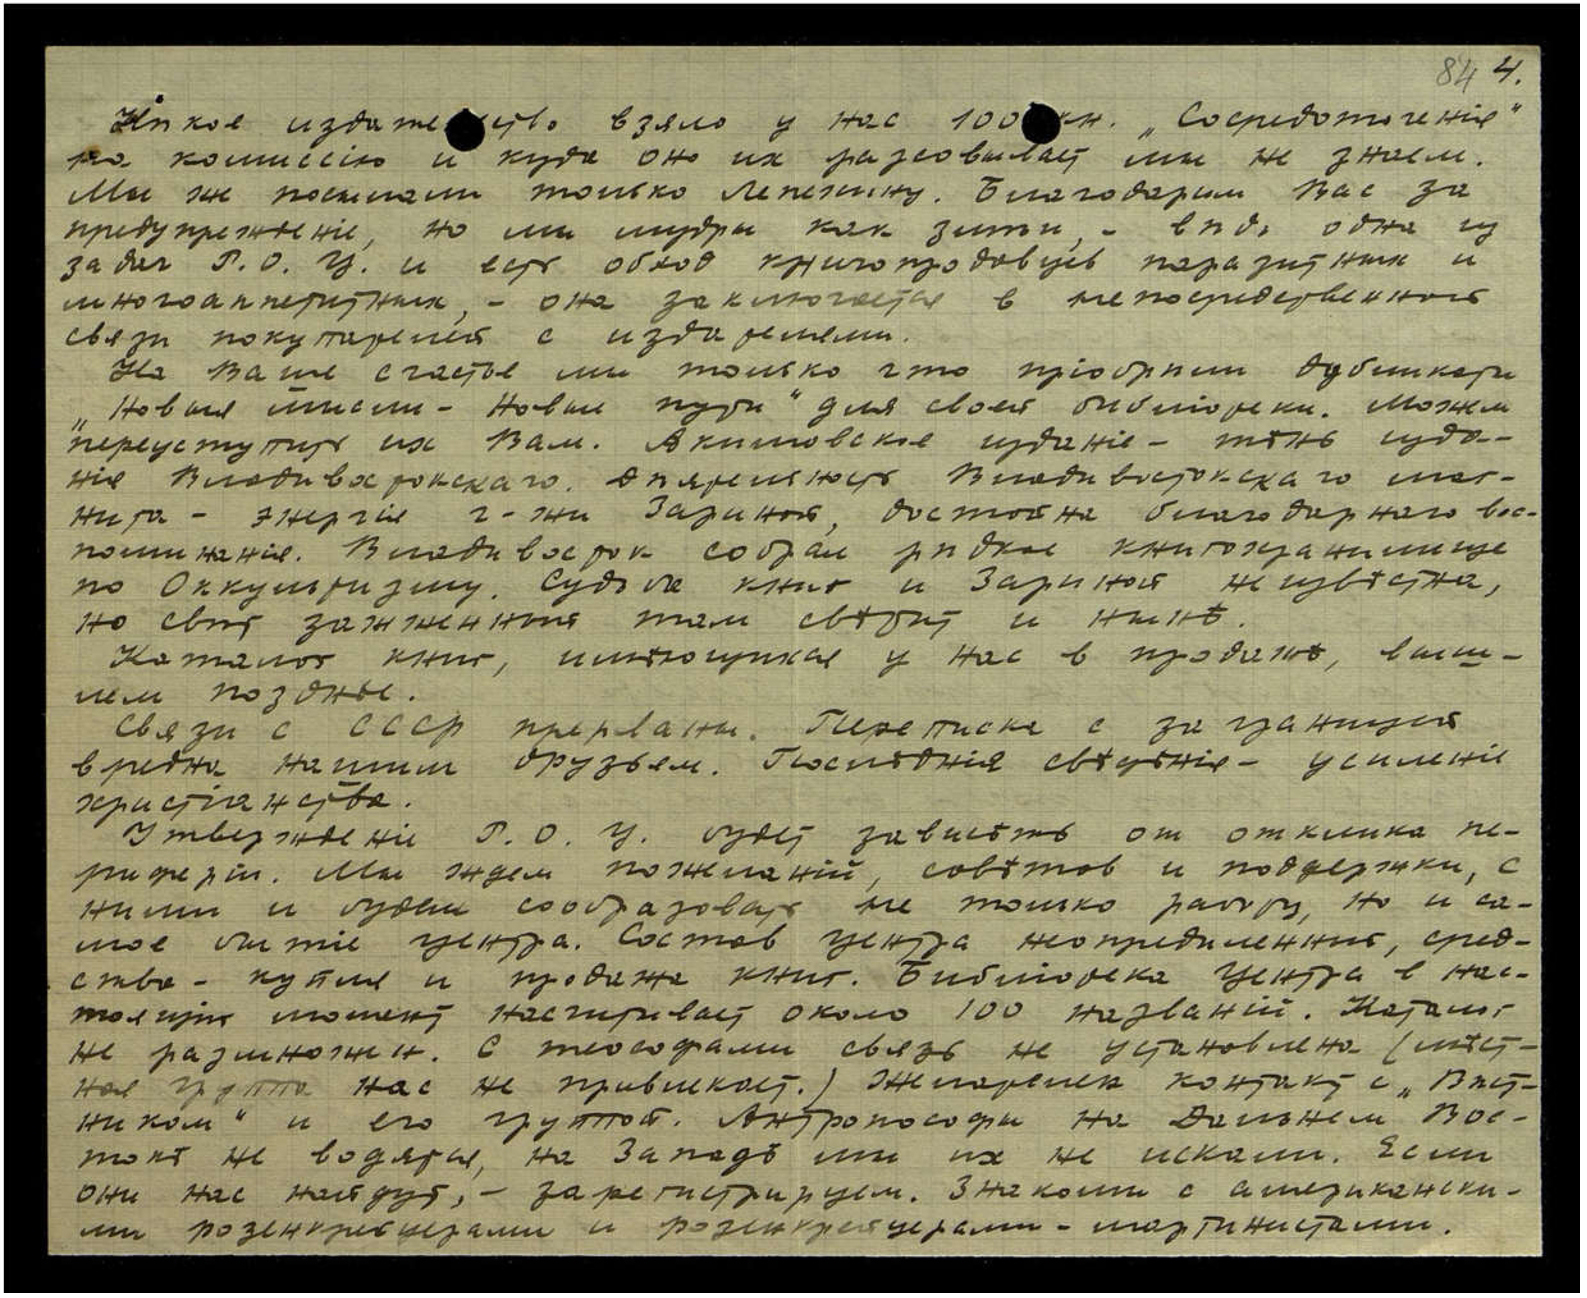 84 4.
Нѣкое издате ство взяло у нас 100 кн. „Сосредоточенія"
на комиссію и куда оно их разсовывает мы не знаем.
Мы же посылали только Лепехину. Благодарим Вас за
предупрежденіе, но мы мудры как зміи, - вѣдь одна из
задач Р. О. Ц. и есть обход книгопродавцев паразитных и
многоаппетитных, - она заключается в непосредственной
связи покупателей с издателями.
На Ваше счастье мы только что пріобрѣли дубликаты
„Новыя мысли - Новые пути" для своей библіотеки. Можем
переуступить их Вам. Акимовское изданіе - тѣнь изда-
нія Владивостокскаго. Дѣятельность Владивостокскаго маг-
нита - энергія г-жи Зариной, достойна благодарнаго вос-
поминанія. Владивосток собрал рѣдкое книгохранилище
по Оккультизму. Судьба книг и Зариной неизвѣстна,
но свѣт зажженный там свѣтит и нынѣ.
Каталог книг, имѣющихся у нас в продажѣ, выш-
лем позднѣе.
Связи с СССР прерваны. Переписка с заграницей
вредна нашим друзьям. Послѣднія свѣдѣнія - усиленіе
христіанства.
Утвержденіе Р. О. Ц. будет зависѣть от отклика пе-
риферіи. Мы ждем пожеланій, совѣтов и поддержки, с
ними и будем сообразовать не только работу, но и са-
мое бытіе центра. Состав центра неопредѣленный, сред-
ства - купля и продажа книг. Библіотека Центра в нас-
тоящій момент насчитывает около 100 названій. Каталог
не размножен. С теософами связь не установлена (мѣст-
ная группа нас не привлекает.) Желателен контакт с „Вѣст-
ником" и его группой. Антропософы на Дальнем Вос-
токѣ не водятся, на Западѣ мы их не искали. Если
они нас найдут, - зарегистрируем. Знакомы с американски-
ми розенкрейцерами и розенкрейцерами - мартинистами.